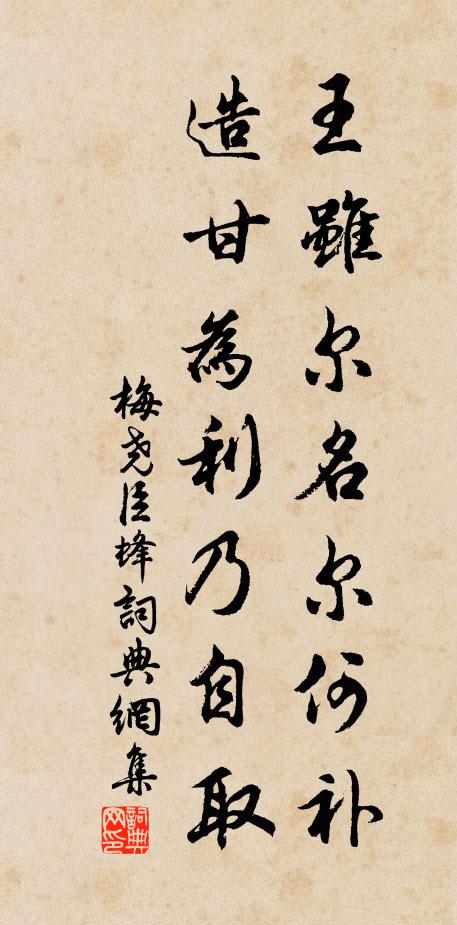 王雖尔名尔何补
造甘為利乃自取
梅尧臣蜂詞典網集
詞典
网印